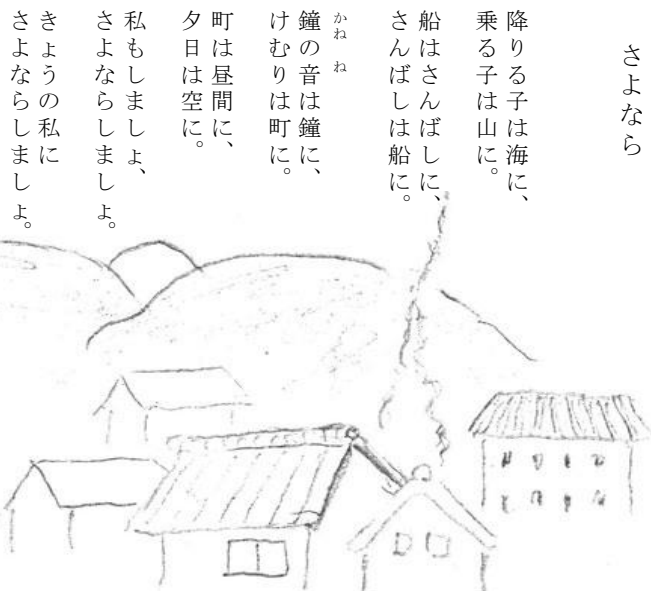 さよなら
降りる子は海に、
乗る子は山に。
船はさんばしに、
さんばしは船に。
かね ね
鐘の音は鐘に、
けむりは町に。
町は昼間に、
夕日は空に。
私もしましょ、
さよならしましょ。
きょうの私に
さよならしましょ。